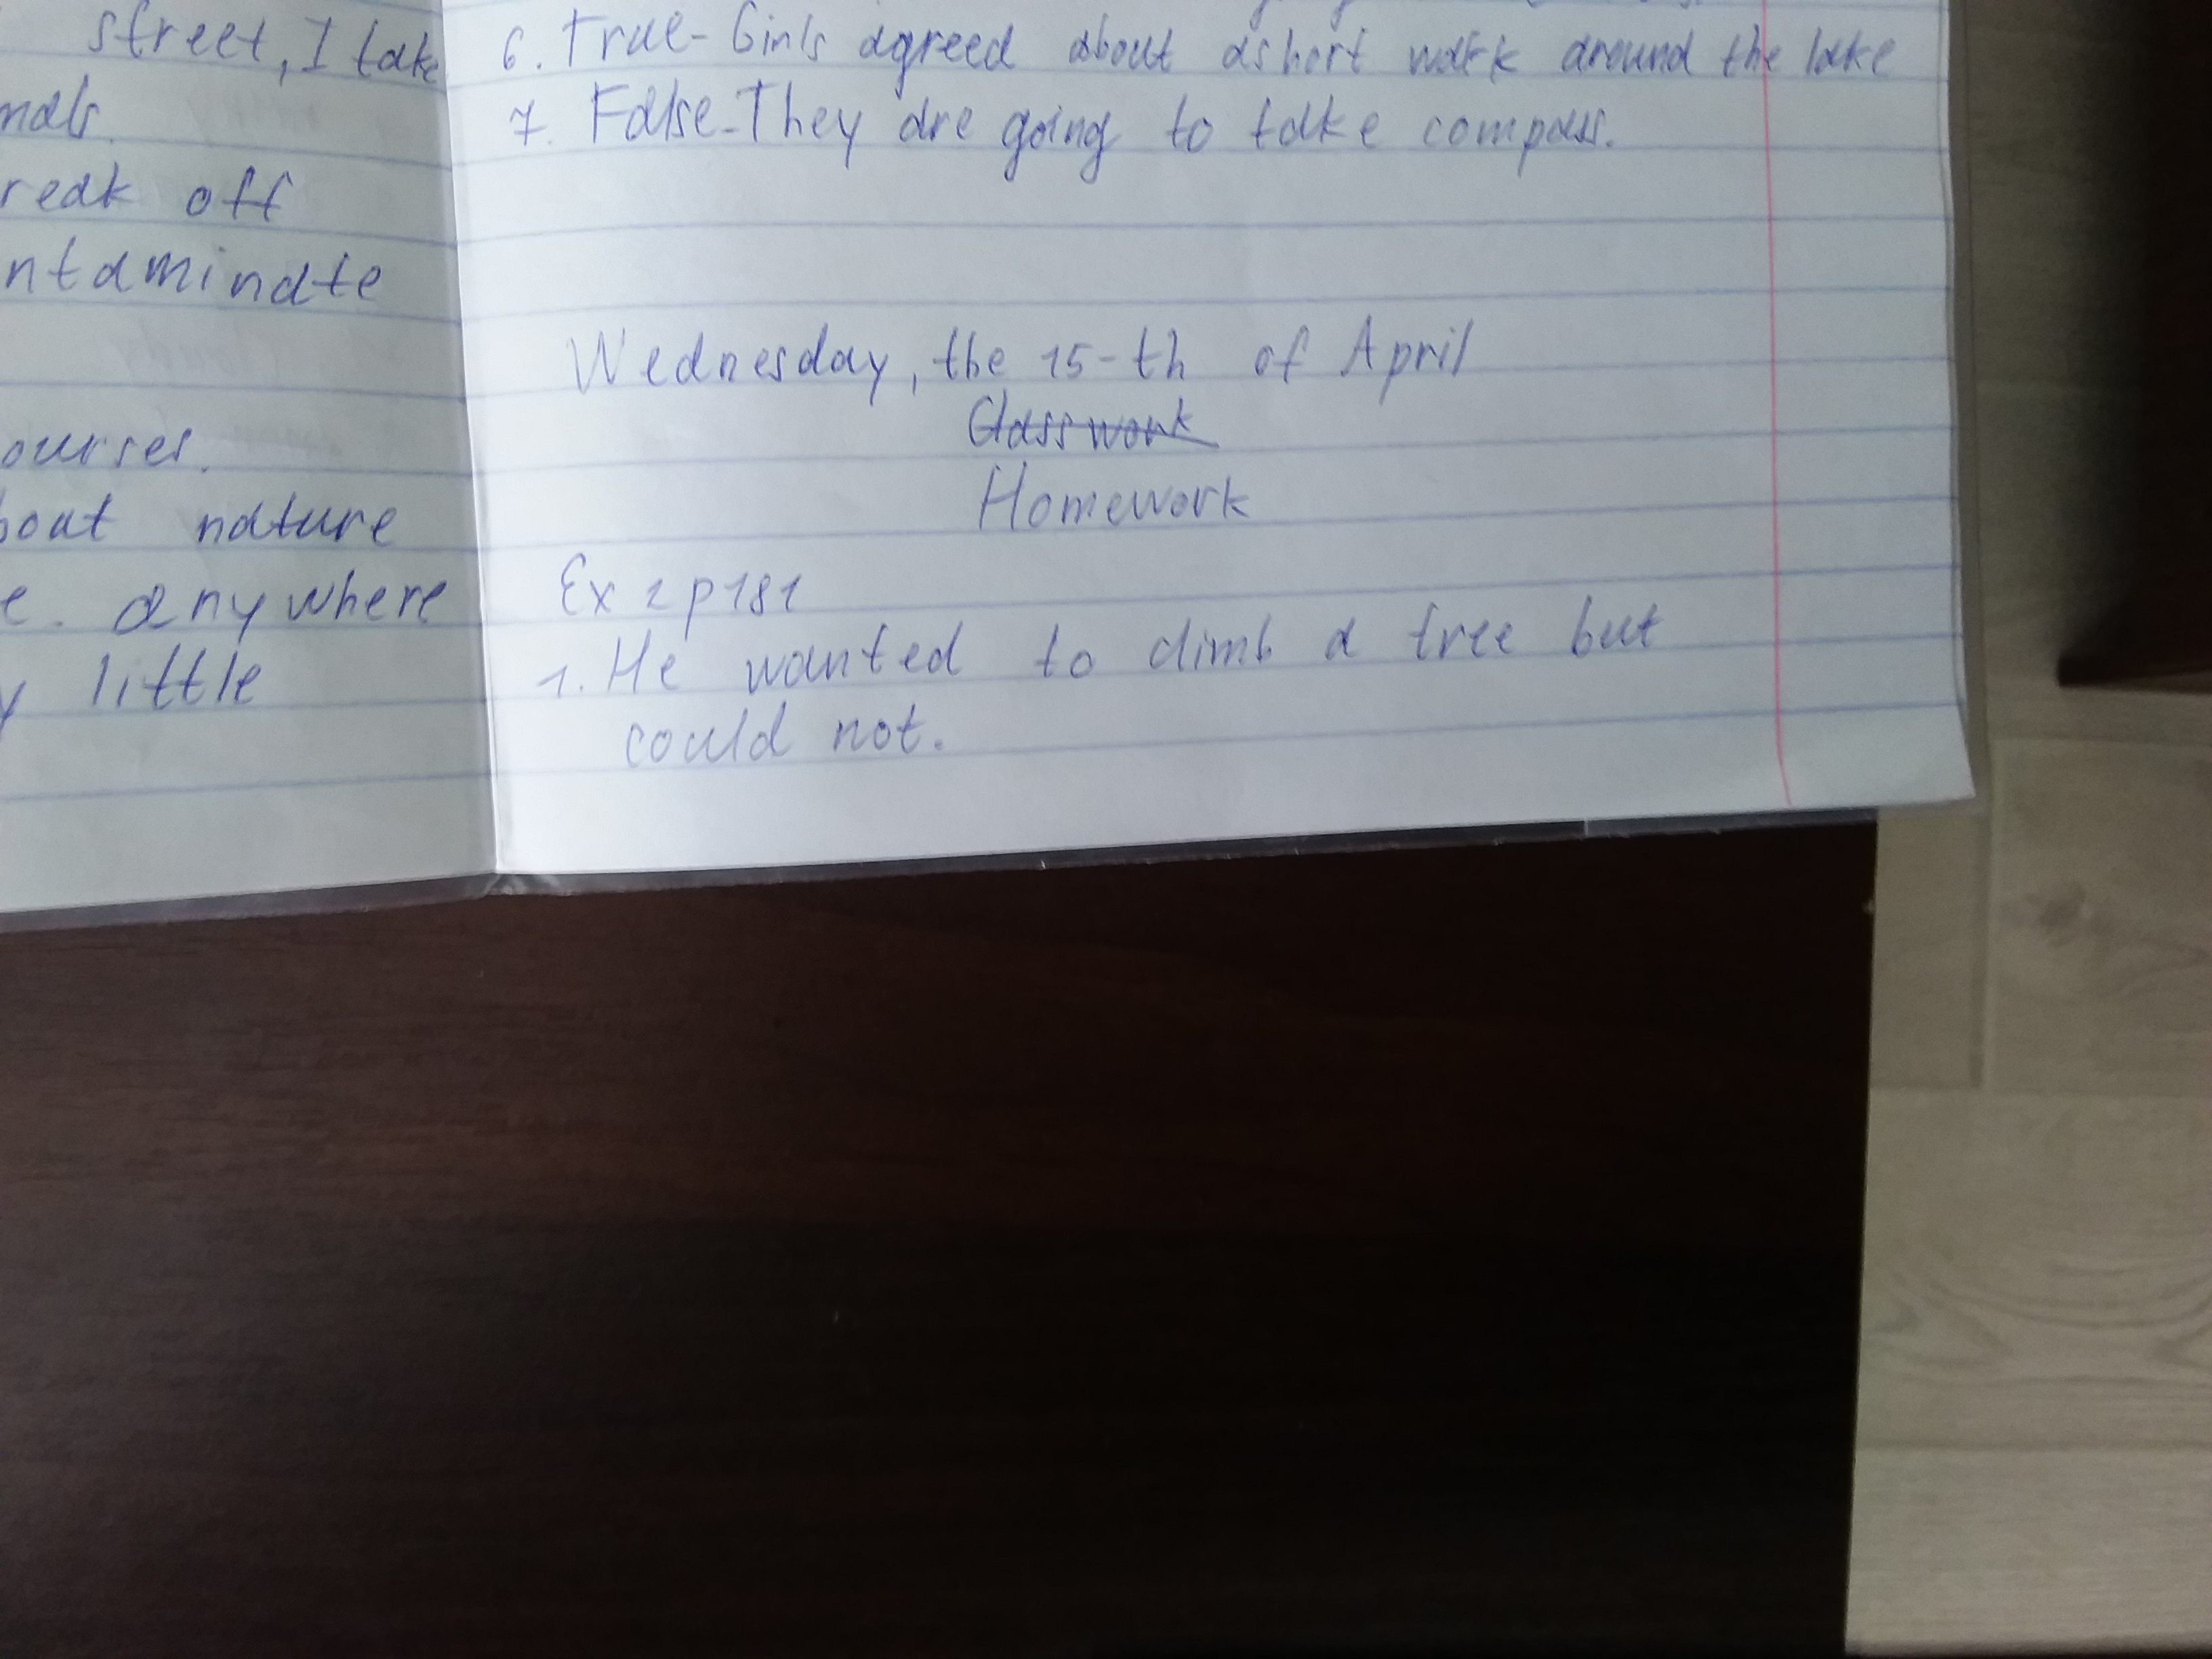 street, I take
nals.
reak off
ntaminate
ourses.
bout nature
e. anywhere
y little
6. True - Girls agreed about a short walk around the lake
7. False - They are going to take compass.
Wednesday, the 15-th of April
Classwork
Homework
Ex 2 p 181
1. He wanted to climb a tree but
could not.